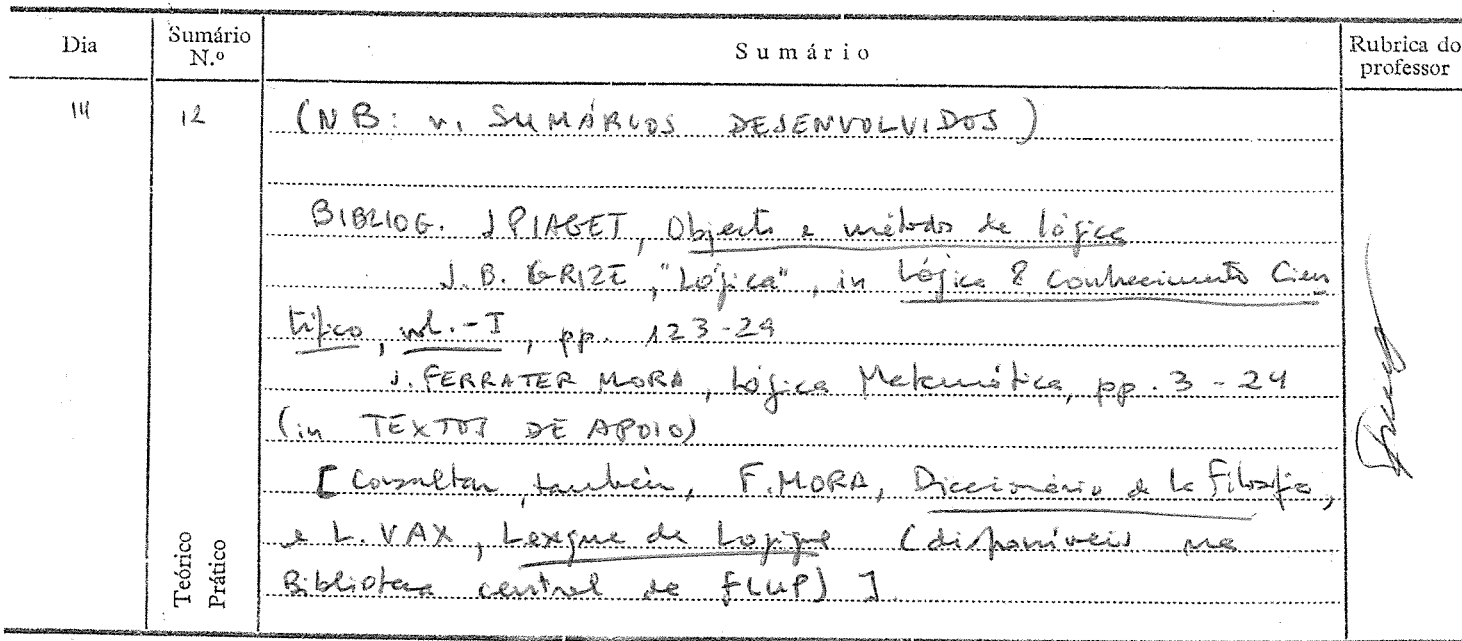 Dia Sumário N.º Sumário Rubrica do professor
14 12 (NB: v. SUMÁRIOS DESENVOLVIDOS)
BIBLIOG. J PIAGET, Objecto e método da lógica
J. B. GRIZE, "Lógica", in Lógica & Conhecimento Cien
tífico, vol. - I, pp. 123-29
J. FERRATER MORA, Lógica Matemática, pp. 3-24
(in TEXTOS DE APOIO)
[Consultar, também, F. MORA, Diccionário de la Filosofia,
e L. VAX, Lexique de Logique (disponíveis na
Biblioteca central da FLUP)].
Teórico
Prático